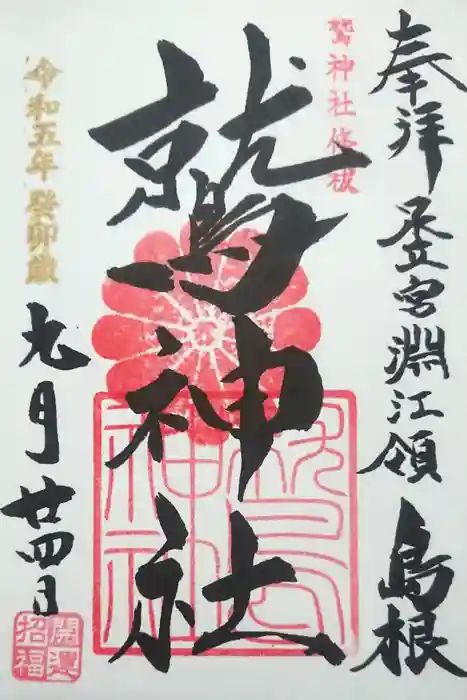 奉拝 宮淵江領 島根
鷲神社修祓
鷲神社
令和五年 癸卯歳
九月廿四日
開運
招福